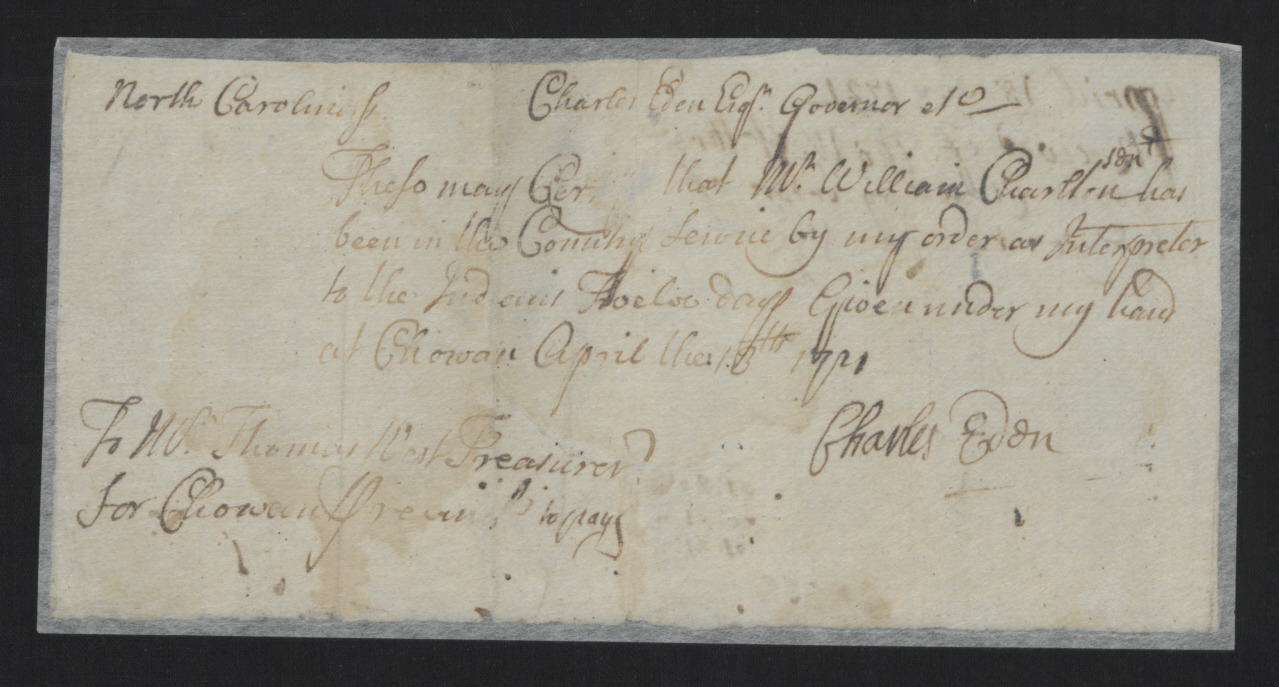 North Carolina ss
Charles Eden Esqr. Governor etc
These may Cer that Mr. William Charlton senr has
been in the Country Servic by my order as Interpreter
to the Indians Twelve days Given under my hand
at Chowan April the 18th 1721
Charles Eden
To Mr. Thomas West Treasurer
for Chowan precinct to pay